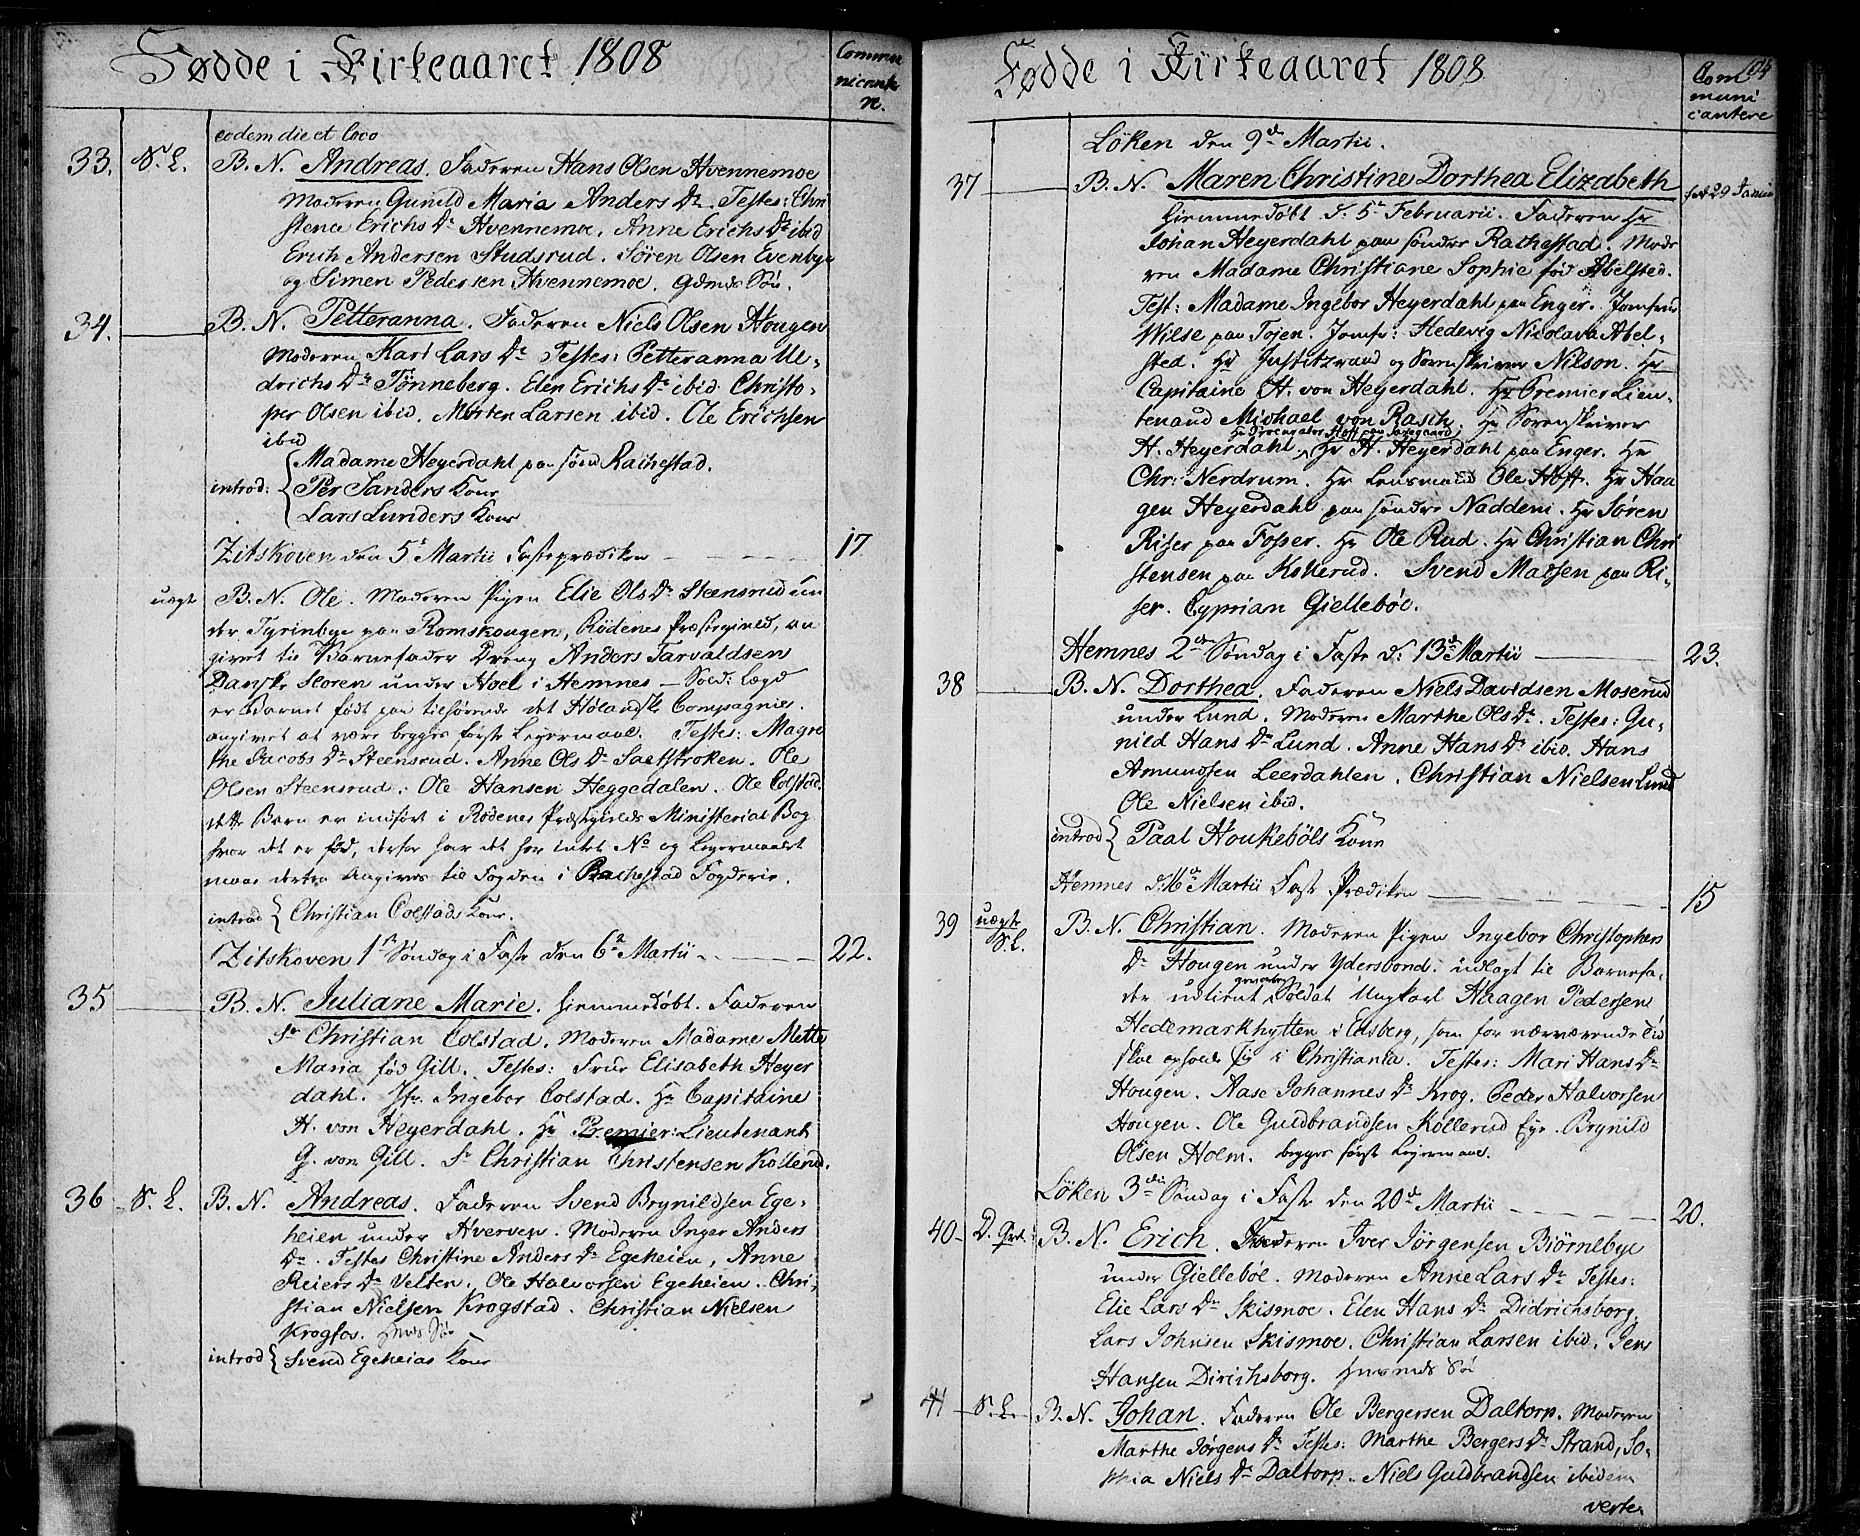 Fødde i Kirkeaaret 1808
Commu
nicante
n.
eodem die et loco
33. S. L. B. N. Andreas. Faderen Hans Olsen Hvennemoe
Moderen Gunild Maria Anders Dr. Testes: Chri
stena Erichs Dr Hvennemoe. Anne Erichs Dr ibid
Erich Andersen Studsrud. Søren Olsen Evenbye
og Simen Pedersen Hvennemoe. Gdmds Søn.
34. B. N. Petteranna. Faderen Niels Olsen Hougen
Moderen Kari Lars Dr Testes: Petteranna Ul-
drichs Dr Tønneberg. Elen Erichs Dr ibid. Christo-
per Olsen ibid. Morten Larsen ibid. Ole Erichsen
ibid
introd: { Madame Heyerdahl paa sønd Rachestad.
Per Sanders Kone
Lars Lunders Kone
Zitskoven den 5te Martii Fasteprædiken 17
uægte B. N. Ole. Moderen Pigen Elie Ols Dr Steensrud un
der Tyrinbye paa Romskougen, Rødenes Præstegield, an
givet til Barnefader Dreng Anders Tarvaldsen
Danske Storen under Hoel i Hemnes - Sold: Lægd
er Barnet født paa tilhørende det Hølandske Compagnie.
angivet at være begges første Leyermaal. Testes: Magre
the Jacobs Dr Steensrud. Anne Ols Dr Saatstroken. Ole
Olsen Steensrud. Ole Hansen Heggedalen. Ole Colstad.
dette Barn er indført i Rødenes Præstegields Ministerial Bog
hvor det er fød, derfor har det her intet No og Leyermaalet
maae derfra angives til Fogden i Rachestad Fogderie.
introd { Christian Colstads Kone.
Zitskoven 1ste Søndag i Faste den 6te Martii 22.
35 B. N. Juliane Marie. hiemmedøbt. Faderen
Sr Christian Colstad. Moderen Madame Mette
Maria fød Gill. Testes: Frue Elisabeth Heyer
dahl. Jfr. Ingebor Colstad. Hr Capitaine
H. von Heyerdahl. Hr Premier: Lieutenant
G. von Gill. Sr Christian Christensen Kollerud.
36 S. L. B. N. Andreas. Faderen Svend Brynildsen Ege-
heien under Hverven. Moderen Inger Anders
Dr. Testes Christine Anders Dr Egeheien, Anne
Reiers Dr Velten. Ole Halvorsen Egeheien. Chri-
stian Nielsen Krogstad. Christian Nielsen
Krogfos. Hmds Søn
introd { Svend Egeheias Kone
Fødde i Kirkeaaret 1808
Com
muni
cantere
Løken den 9de Martii.
37 B. N. Maren Christine Dorthea Elizabeth fød 29 Januar
hiemmedøbt d. 5te Februarii. Faderen Hr
Johan Heyerdahl paa søndre Rachestad. Mode
ren Madame Christiane Sophie fød Abelsted.
Test: Madame Ingebor Heyerdahl paa Enger. Jomfrue
Wilse paa Tojen. Jomfr: Hedevig Nicolava Abel-
sted. Hr Justitzraad og Sorenskriver Nilson. Hr
Capitaine H. von Heyerdahl. Hr Premier Lieu-
tenand Michael von Rasch. Hr Sorenskriver
H. Heyerdahl, Hr H. Heyerdahl paa Enger. Hr
Chr: Nerdrum. Hr Lensmand Ole Hoft. Hr Haa
gen Heyerdahl paa søndre Naddeni. Hr Søren
Riser paa Fosser. Hr Ole Rud. Hr Christian Chri
stensen paa Kollerud. Svend Madsen paa Ri-
ser. Cyprian Giellebøe.
Hemnes 2den Søndag i Faste d: 13de Martii 23.
38 B. N. Dorthea. Faderen Niels Davidsen Moserud
under Lund. Moderen Marthe Ols Dr. Testes: Gu-
nild Hans Dr Lund. Anne Hans Dr ibid. Hans
Amundsen Leerdahlen. Christian Nielsen Lund
Ole Nielsen ibid.
introd { Paal Houkebøls Kone
Hemnes d. 16de Martii Faste Prædiken 15
39 uægte S. L. B. N. Christian. Moderen Pigen Ingebor Christophers
Dr Hougen under Ydersbond. udlagt til Barnefa-
der udtient Soldat Ungkarl Haagen Pedersen
Hedemarkhytten i Edsberg, som for nærværende Tid
skal opholde sig i Christiania. Testes: Mari Hans Dr
Hougen. Aase Johannes Dr Krog. Peder Halvorsen
Hougen. Ole Guldbrandsen Kollerud Eye. Brynild
Olsen Holm. begges først Leyermaal.
Løken 3die Søndag i Faste den 20de Martii 20.
40 D. Qvt. B. N. Erich. Faderen Iver Jørgensen Biørnebye
under Giellebøe. Moderen Anne Lars Dr Testes:
Elie Lars Dr Skismoe. Elen Hans Dr Didrichsborg.
Lars Johnsen Skismoe. Christian Larsen ibid. Jens
Hansen Dirichsborg. Huusmds Sø
41 S. L. B. N. Johan. Faderen Ole Bergersen Daltorp. Moderen
Marthe Jørgens Dr Testes: Marthe Bergers Dr Strand, So-
phia Niels Dr Daltorp. Niels Guldbrandsen ibidem
verte.